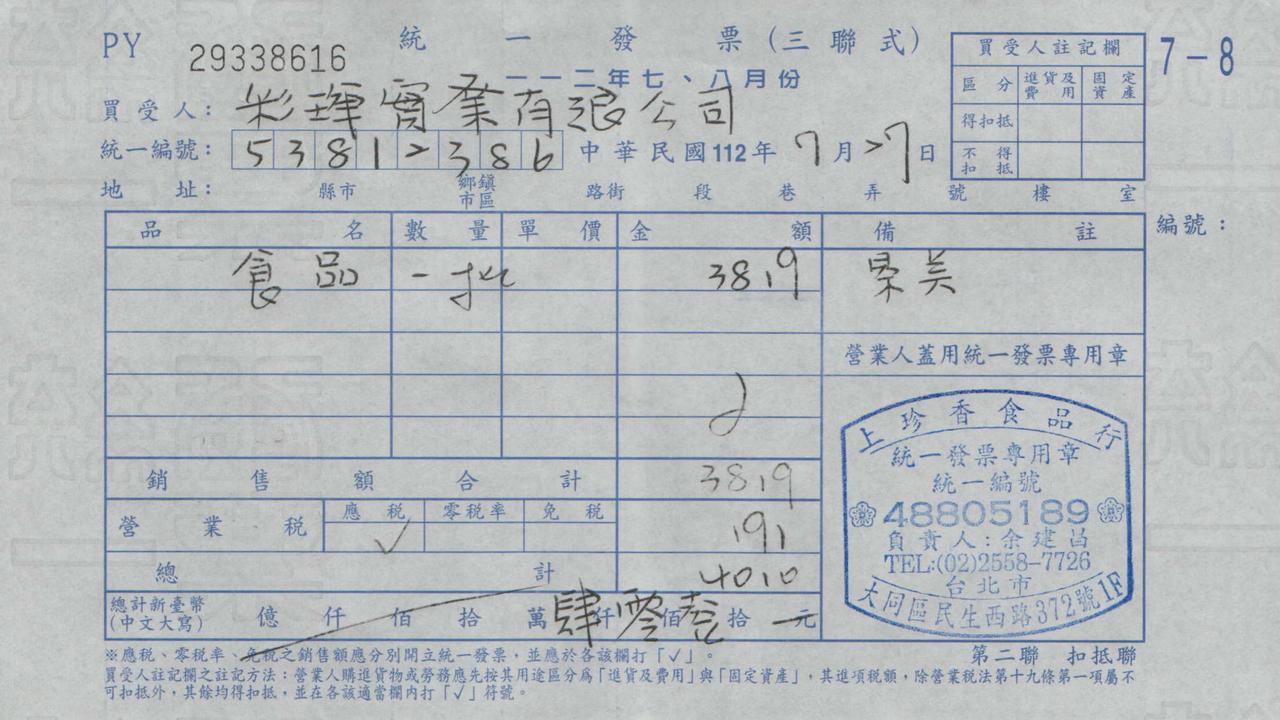 PY 29338616 統一發票(三聯式)
一一二年七、八月份
買受人註記欄
區分 進貨及費用 固定資產
得扣抵
不得扣抵
7-8
買受人: 彩琿實業有限公司
統一編號: 53812386 中華民國112年7月27日
地址: 縣市 鄉鎮市區 路街 段 巷 弄 號 樓 室
品名 數量 單價 金額 備註 編號:
食品 一批 3819
營業人蓋用統一發票專用章
上珍香食品行
統一發票專用章
統一編號
48805189
負責人:余建昌
TEL:(02)2558-7726
台北市
大同區民生西路372號1F
銷售額合計 3819
營業稅 應稅 零稅率 免稅
✓ 191
總計 4010
總計新臺幣(中文大寫) 億 仟 佰 拾 萬 肆仟零佰 拾 元
※應稅、零稅率、免稅之銷售額應分別開立統一發票,並應於各該欄打「✓」。
第二聯 扣抵聯
買受人註記欄之註記方法:營業人購進貨物或勞務應先按其用途區分為「進貨及費用」與「固定資產」,其進項稅額,除營業稅法第十九條第一項屬不
可扣抵外,其餘均得扣抵,並在各該適當欄內打「✓」符號。